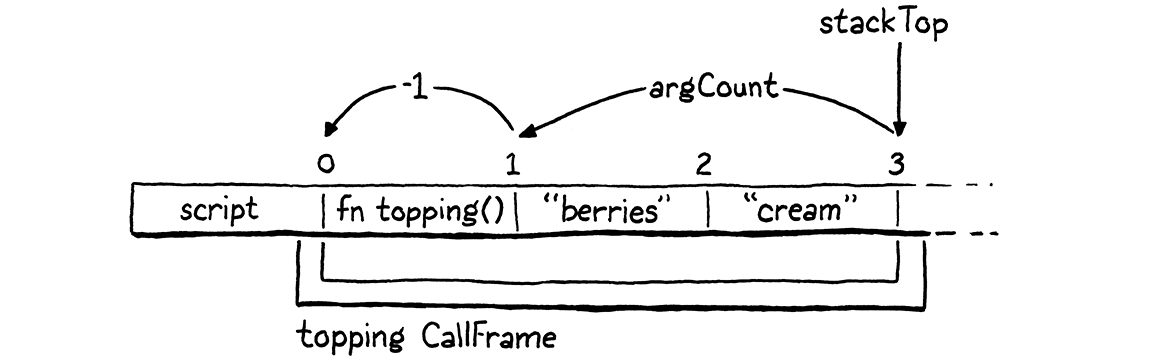 stackTop
-1 argCount
0 1 2 3
script fn topping() “berries” “cream”
topping CallFrame